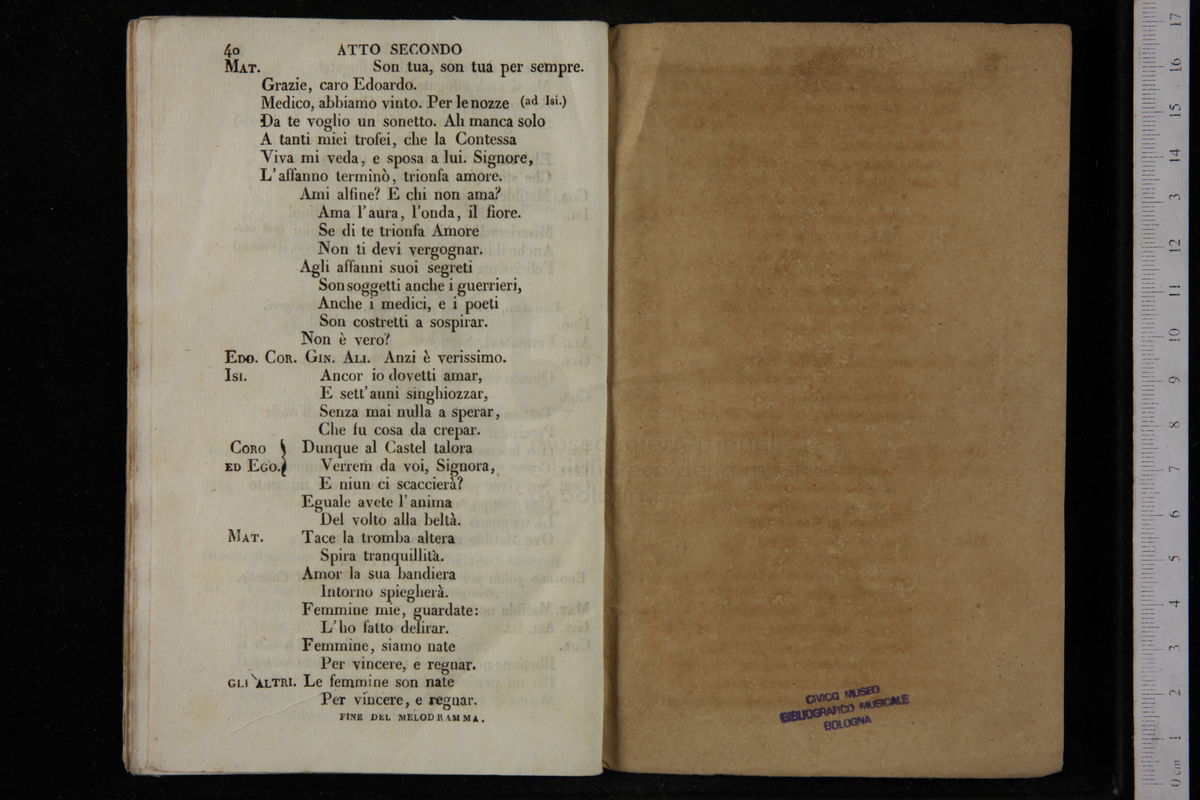 40 ATTO SECONDO
MAT. Son tua, son tua per sempre.
Grazie, caro Edoardo.
Medico, abbiamo vinto. Per le nozze (ad Isi.)
Da te voglio un sonetto. Ah manca solo
A tanti miei trofei, che la Contessa
Viva mi veda, e sposa a lui. Signore,
L'affanno terminò, trionfa amore.
Ami alfine? E chi non ama?
Ama l'aura, l'onda, il fiore.
Se di te trionfa Amore
Non ti devi vergognar.
Agli affanni suoi segreti
Son soggetti anche i guerrieri,
Anche i medici, e i poeti
Son costretti a sospirar.
Non è vero?
EDO. COR. GIN. ALI. Anzi è verissimo.
ISI. Ancor io dovetti amar,
E sett'anni singhiozzar,
Senza mai nulla a sperar,
Che fu cosa da crepar.
CORO Dunque al Castel talora
ED EGO. Verrem da voi, Signora,
E niun ci scaccierà?
Eguale avete l'anima
Del volto alla beltà.
MAT. Tace la tromba altera
Spira tranquillità.
Amor la sua bandiera
Intorno spiegherà.
Femmine mie, guardate:
L'ho fatto delirar.
Femmine, siamo nate
Per vincere, e regnar.
GLI ALTRI. Le femmine son nate
Per vincere, e regnar.
FINE DEL MELODRAMMA.
CIVICO MUSEO
BIBLIOGRAFICO MUSICALE
BOLOGNA
17
16
15
14
3
12
11
10
9
8
7
6
5
4
3
2
1
0 cm